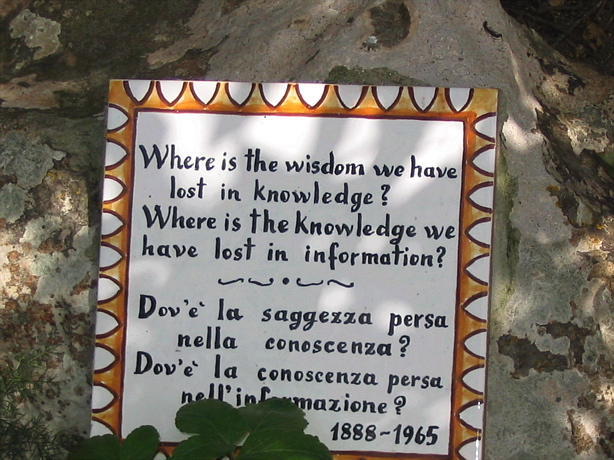 Where is the wisdom we have
lost in knowledge?
Where is the knowledge we
have lost in information?
Dov'è la saggezza persa
nella conoscenza?
Dov'è la conoscenza persa
nell'informazione?
1888-1965